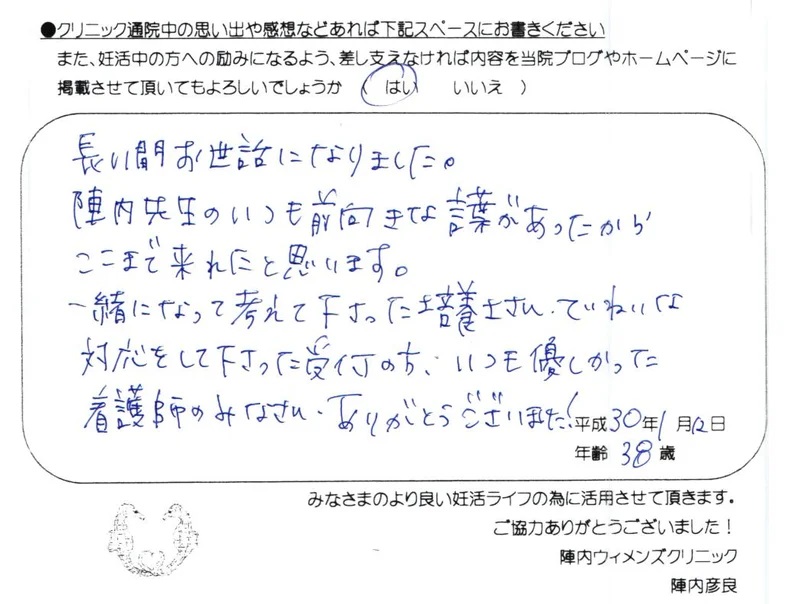 ●クリニック通院中の思い出や感想などあれば下記スペースにお書きください
また、妊活中の方への励みになるよう、差し支えなければ内容を当院ブログやホームページに
掲載させて頂いてもよろしいでしょうか （ はい　　いいえ ）
長い間お世話になりました。
陣内先生のいつも前向きな言葉があったから
ここまで来れたと思います。
一緒になって考えて下さった培養士さん、ていねいな
対応をして下さった受付の方、いつも優しかった
看護師のみなさん、ありがとうございました！
平成30年1月12日
年齢 38歳
みなさまのより良い妊活ライフの為に活用させて頂きます。
ご協力ありがとうございました！
陣内ウィメンズクリニック
陣内彦良